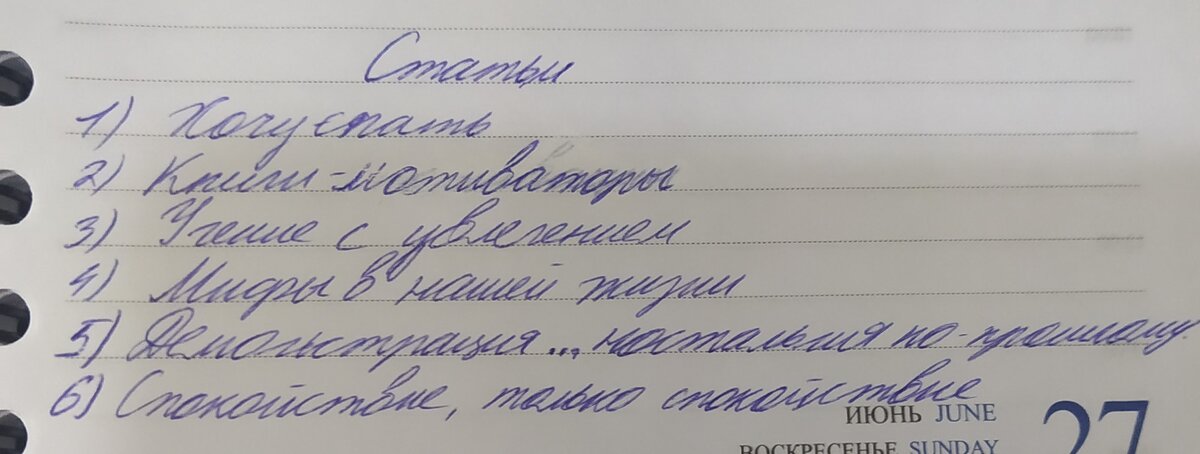 Статьи
1) Хочу спать
2) Книги-мотиваторы
3) Учение с увлечением
4) Мифы в нашей жизни
5) Демонстрация... ностальгия по-прошлому.
6) Спокойствие, только спокойствие
ИЮНЬ JUNE 27
ВОСКРЕСЕНЬЕ SUNDAY